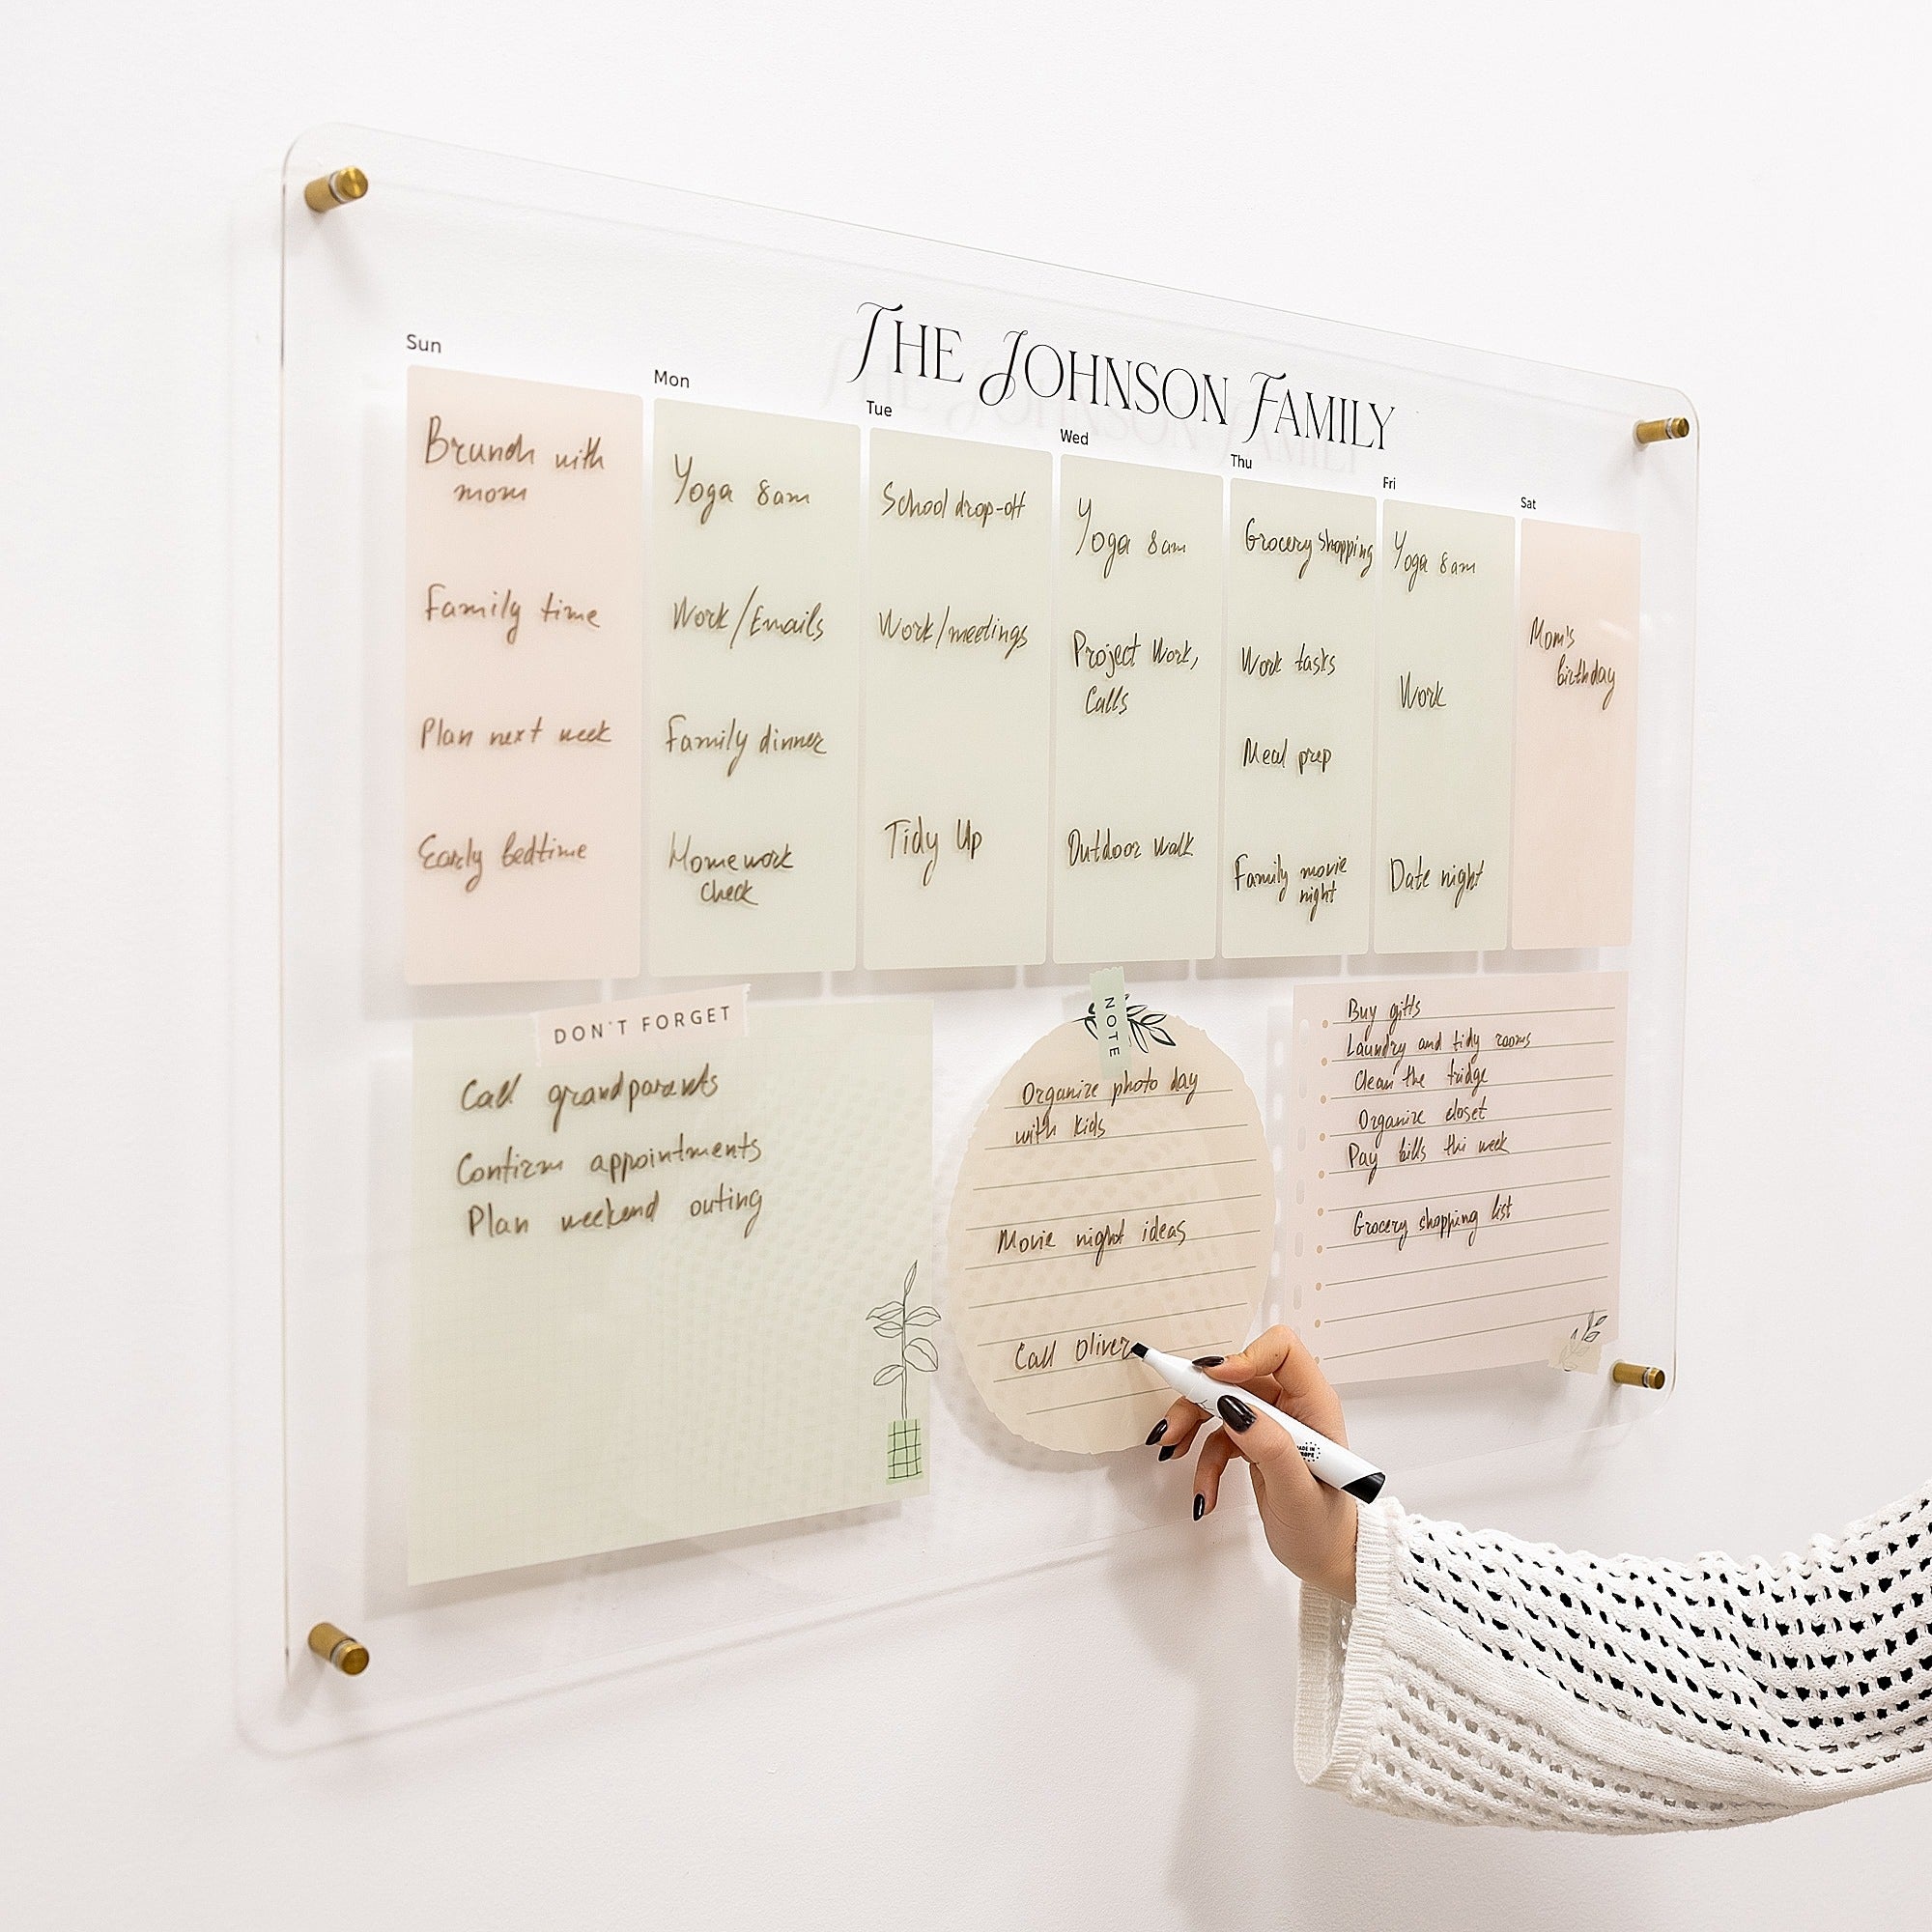 THE JOHNSON FAMILY
Sun
Brunch with
mom
Family time
Plan next week
Early bedtime
Mon
Yoga 8am
Work/Emails
Family dinner
Homework
check
Tue
School drop-off
Work/meetings
Tidy Up
Wed
Yoga 8am
Project Work,
Calls
Outdoor walk
Thu
Grocery shopping
Work tasks
Meal prep
Family movie
night
Fri
Yoga 8am
Work
Date night
Sat
Mom's
birthday
DON'T FORGET
Call grandparents
Confirm appointments
Plan weekend outing
NOTE
Organize photo day
with kids
Movie night ideas
Call Oliver
Buy gifts
Laundry and tidy rooms
Clean the fridge
Organize closet
Pay bills this week
Grocery shopping list